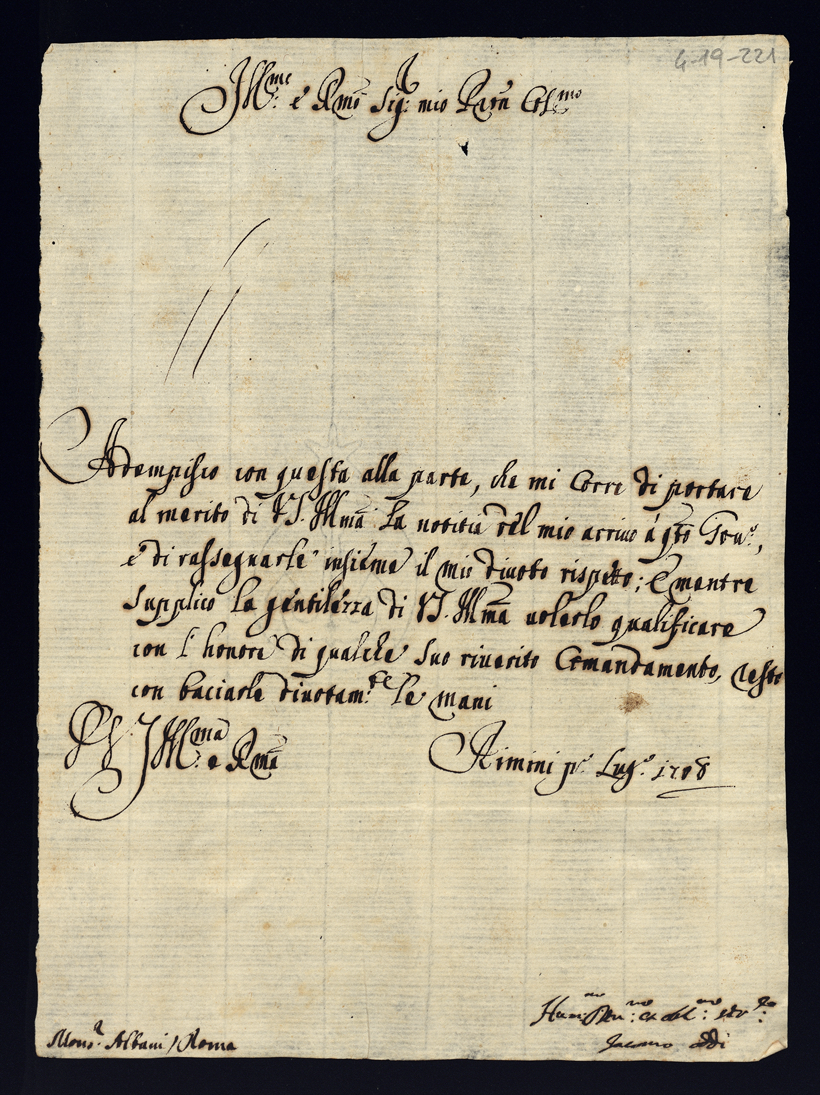 4-19-221
Ill.me e Rmo Sig.r mio Pron Col.mo
Adempisco con questa alla parte, che mi corre di portare
al merito di V.S. Illma la notitia del mio arrivo á qto Gou.o,
e di rassegnarle insieme il mio diuoto rispetto; E mentre
supplico la gentilezza di V.S. Illma uolerlo qualificare
con l'honore di qualche suo riuerito Comandamento, resto
con baciarle diuotam.te le mani
D V.S. Ill.ma e Rma
Rimini p.o Lug.o 1708
Mons.r Albani / Roma
Giacomo Oddi